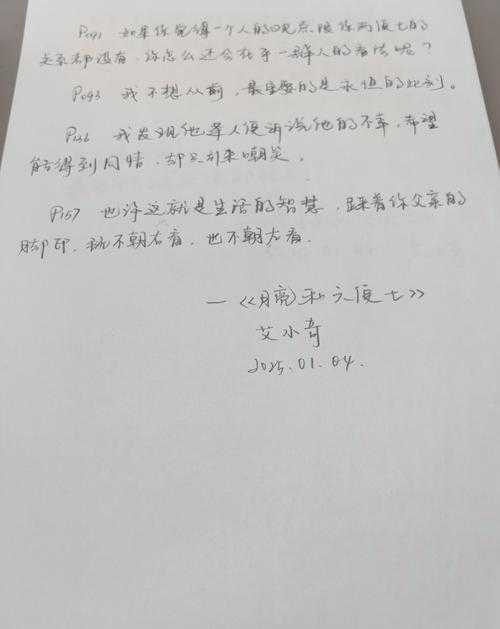 P091 如果你觉得一个人的观点跟你两便士的
关系都没有，你怎么还会在乎一群人的看法呢？
P093 我不想从前，最重要的是永恒的此刻。
我发现他逢人便诉说他的不幸，希望
能得到同情，却只引来嘲笑。
P157 也许这就是生活的智慧，踩着你父亲的
脚印，既不朝右看，也不朝左看.
—《月亮和六便士》
艾小奇
2025.01.04.